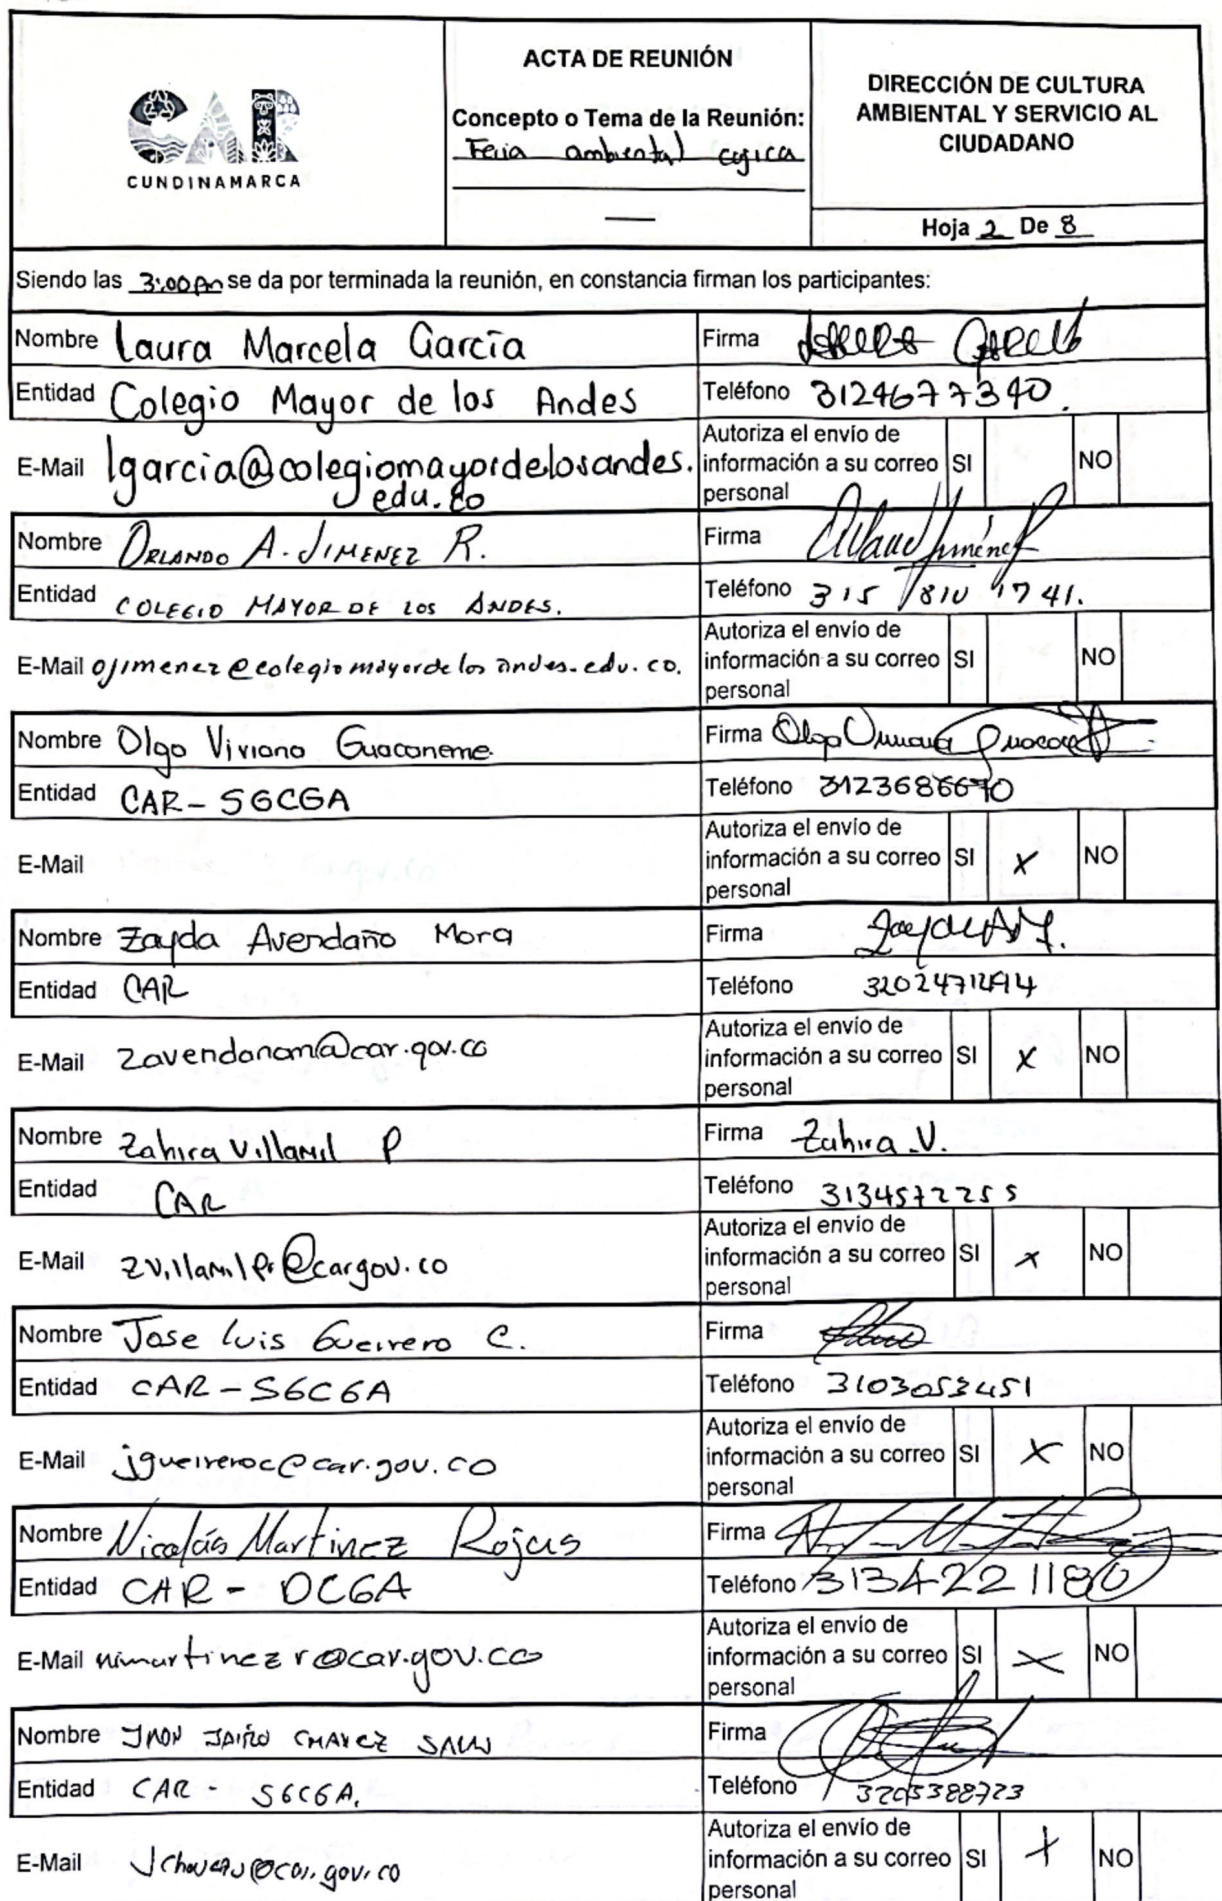 CAR
CUNDINAMARCA
ACTA DE REUNIÓN
Concepto o Tema de la Reunión:
Feria ambental cajica
DIRECCIÓN DE CULTURA
AMBIENTAL Y SERVICIO AL
CIUDADANO
Hoja 2 De 8
Siendo las 3:00pm se da por terminada la reunión, en constancia firman los participantes:
Nombre Laura Marcela García
Firma
Entidad Colegio Mayor de los Andes
Teléfono 3124677340.
E-Mail lgarcia@colegiomayordelosandes.
edu.co
Autoriza el envío de
información a su correo SI NO
personal
Nombre ORLANDO A. JIMENEZ R.
Firma
Entidad COLEGIO MAYOR DE LOS ANDES.
Teléfono 315 810 1741.
E-Mail ojimenez@colegiomayordelosandes.edu.co.
Autoriza el envío de
información a su correo SI NO
personal
Nombre Olga Viviana Guacaneme
Firma Olga
Entidad CAR-SGCGA
Teléfono 3123686670
E-Mail
Autoriza el envío de
información a su correo SI X NO
personal
Nombre Zayda Avendaño Mora
Firma
Entidad CAR
Teléfono
E-Mail zavendanom@car.gov.co
Autoriza el envío de
información a su correo SI X NO
personal
Nombre Zahira Villamil P
Firma Zahira V.
Entidad CAR
Teléfono 3134572255
E-Mail
Autoriza el envío de
información a su correo SI X NO
personal
Nombre Jose Luis Guerrero C.
Firma
Entidad CAR-SGCGA
Teléfono 3103053451
E-Mail jguerreroc@car.gov.co
Autoriza el envío de
información a su correo SI X NO
personal
Nombre Nicolás Martinez Rojas
Firma
Entidad CAR - DCGA
Teléfono 3134221180
E-Mail nimartinezr@car.gov.co
Autoriza el envío de
información a su correo SI X NO
personal
Nombre JHON JAIRO CHAVEZ
Firma
Entidad CAR SGCGA.
Teléfono 3205388723
E-Mail
Autoriza el envío de
información a su correo SI X NO
personal